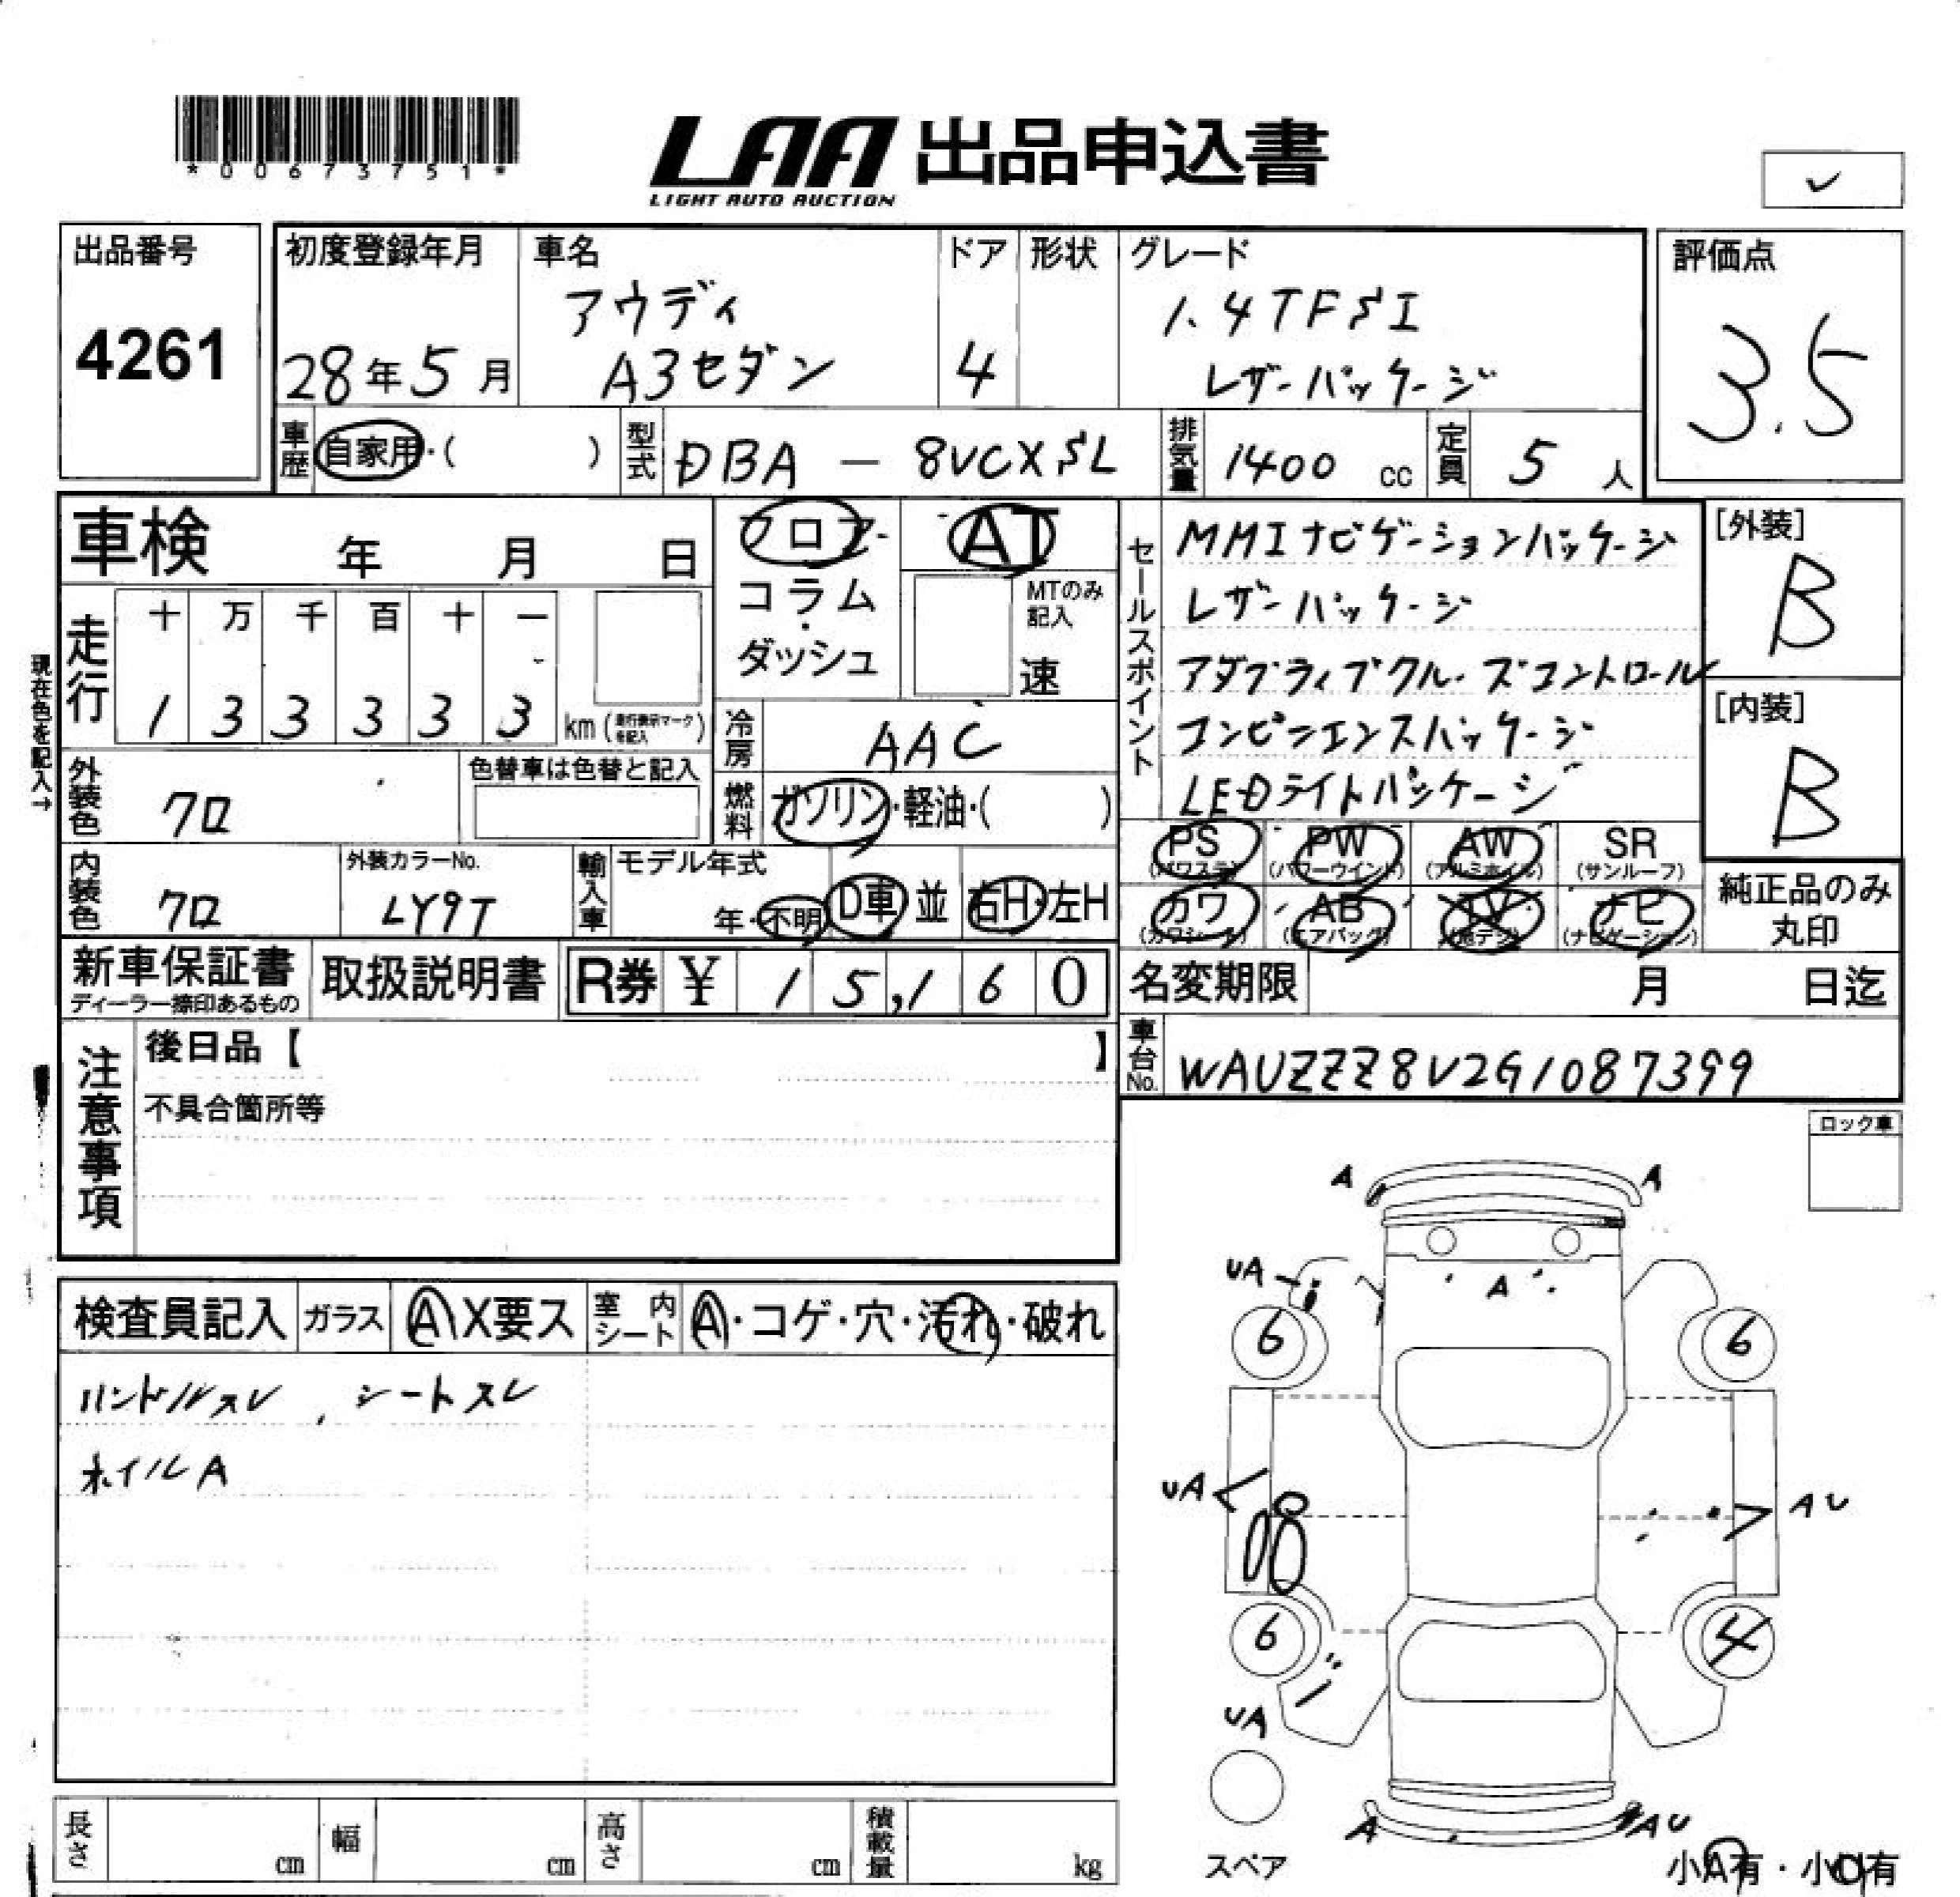 *00673751*
LAA 出品申込書
LIGHT AUTO AUCTION
✓
出品番号
4261
初度登録年月
28年5月
車名
アウディ
A3セダン
ドア
4
形状
グレード
1.4TFSI
レザーパッケージ
評価点
3.5
車歴
自家用・( )
型式
DBA - 8VCXSL
排気量
1400 cc
定員
5 人
車検 年 月 日
フロア・
コラム・
ダッシュ
AT
MTのみ記入
速
セールスポイント
MMIナビゲーションパッケージ
レザーパッケージ
アダプティブクルーズコントロール
コンビニエンスパッケージ
LEDライトパッケージ
[外装]
B
[内装]
B
現在色を記入→
走行
十 万 千 百 十 一
1 3 3 3 3 3 km (走行表示マークを記入)
冷房
AAC
外装色
クロ
色替車は色替と記入
燃料
ガソリン・軽油・( )
PS (パワステ)
PW (パワーウインド)
AW (アルミホイル)
SR (サンルーフ)
カワ (カワシート)
AB (エアバッグ)
TV (地デジ)
ナビ (ナビゲーション)
純正品のみ
丸印
内装色
クロ
外装カラーNo.
LY9T
輸入車
モデル年式
年・不明
D車 並
右H・左H
新車保証書
ディーラー捺印あるもの
取扱説明書
R券 ¥ 15,160
名変期限 月 日迄
車台No.
WAUZZZ8V2G1087399
注意事項
後日品【 】
不具合箇所等
ロック車
検査員記入
ガラス
A X要ス
室内シート
A・コゲ・穴・汚れ・破れ
ハンドルスレ, シートスレ
ホイルA
A
A
UA
A
6
6
UA
AU
6
4
UA
A
AU
スペア
小A有・小U有
長さ cm
幅 cm
高さ cm
積載量 kg